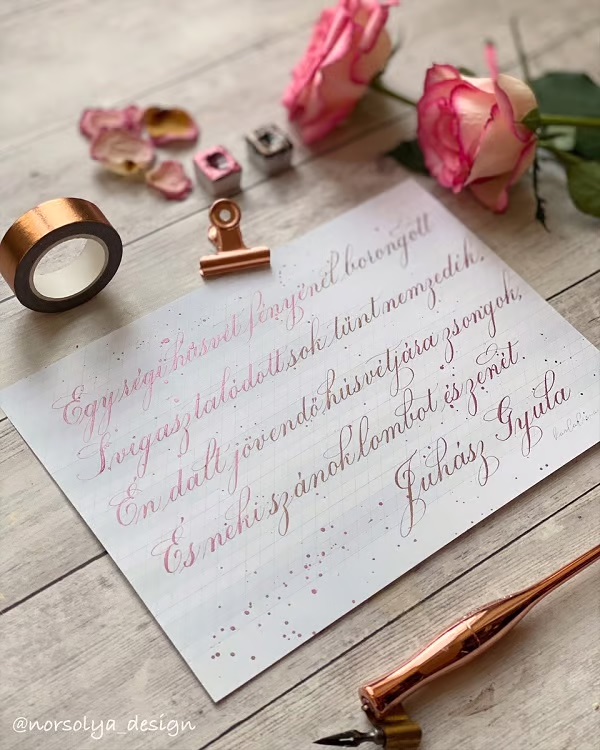 Egy régi húsvét fényénél borongott
S vigasztalódott sok tűnt nemzedék,
Én dalt jövendő húsvétjára zsongok,
És neki szánok lombot és zenét.
Juhász Gyula
@norsolya_design